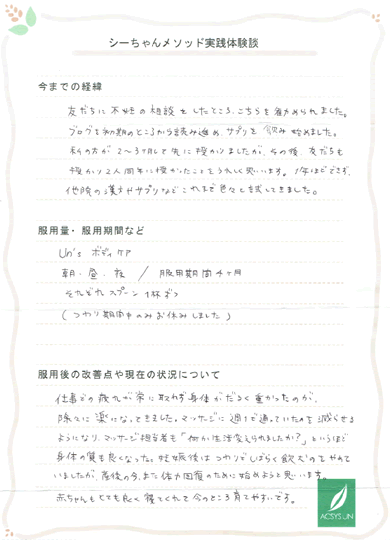 シーちゃんメソッド実践体験談
今までの経緯
友だちに不妊の相談をしたところ、こちらを勧められました。
ブログを初期のところから読み進め、サプリを飲み始めました。
私の方が2〜3ヶ月と先に授かりましたが、その後、友だちも
授かり2人同年に授かったことをうれしく思います。1年ほどできず、
他院の漢方やサプリなどこれまで色々と試してきました。
服用量・服用期間など
Un's ボディケア
朝・昼・夜 / 服用期間4ヶ月
それぞれスプーン1杯ずつ
(つわり期間中のみお休みしました)
服用後の改善点や現在の状況について
仕事での疲れが常に取れず身体がだるく重かったのが、
除々に楽になってきました。マッサージに週1で通っていたのを減らせる
ようになり、マッサージ担当者も「何か生活変えられましたか?」というほど
身体の質も良くなった。妊娠後はつわりでしばらく飲めずやめて
いましたが、産後の今、また体力回復のために始めようと思います。
赤ちゃんもとても良く寝てくれて今のところ育てやすいです。
ACSYS UN